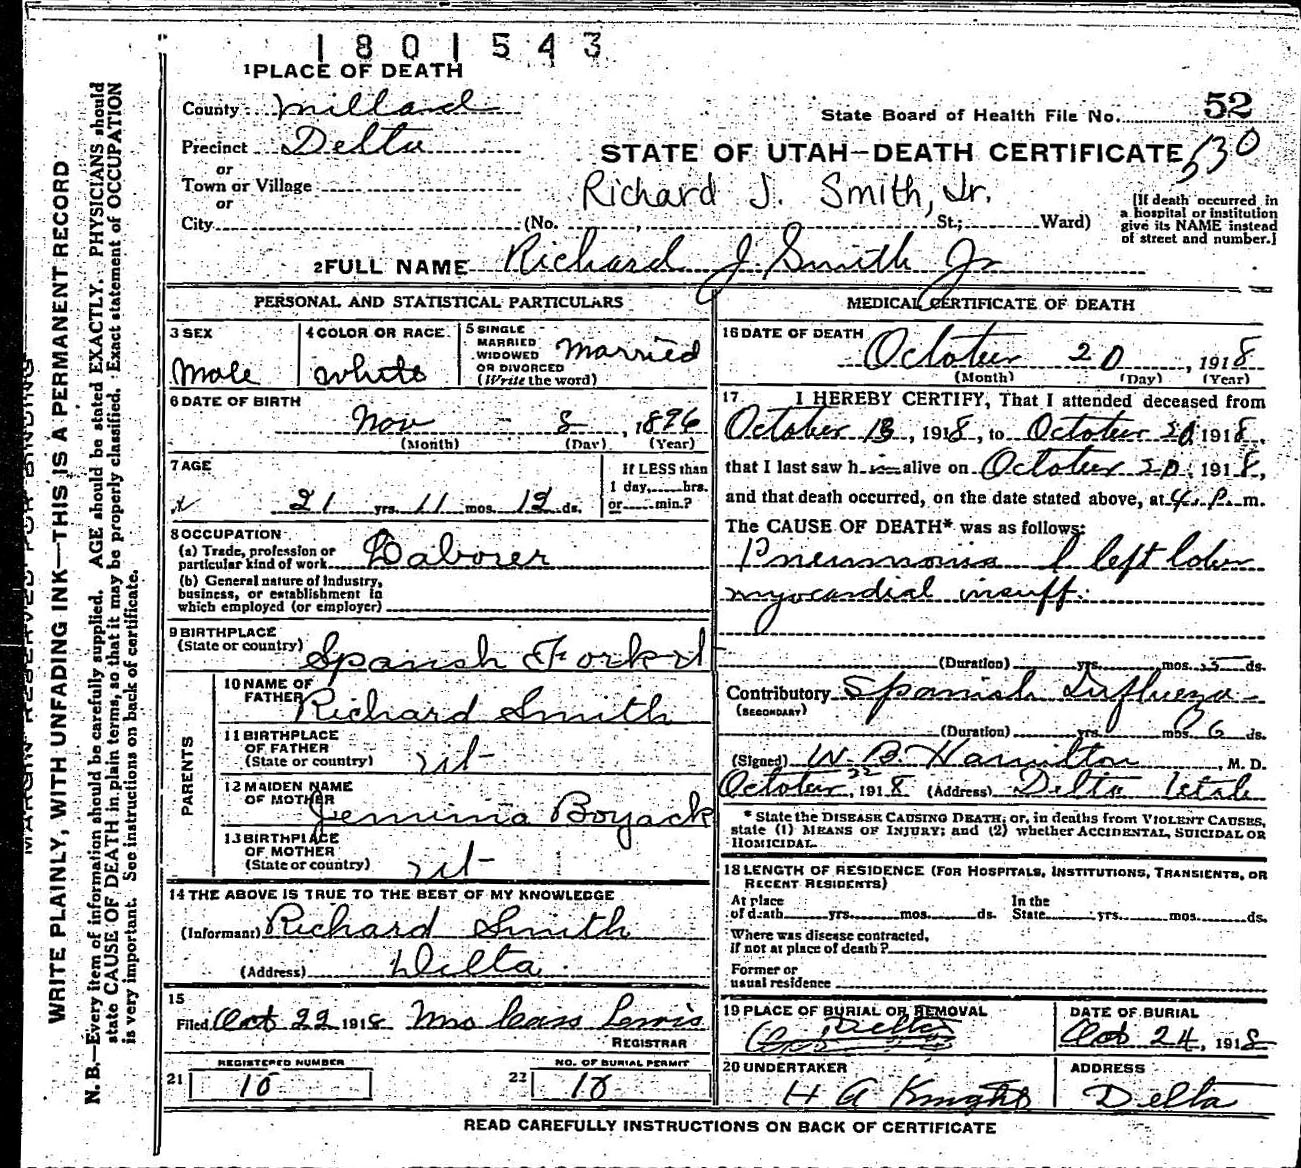 1801543
1 PLACE OF DEATH
County Millard
State Board of Health File No. 52
Precinct Delta
530
or
STATE OF UTAH—DEATH CERTIFICATE
Town or Village
Richard J. Smith, Jr.
or
City (No. , St.; Ward)
[If death occurred in
a hospital or institution
give its NAME instead
of street and number.]
2 FULL NAME Richard J. Smith Jr
PERSONAL AND STATISTICAL PARTICULARS
3 SEX
Male
4 COLOR OR RACE
White
5 SINGLE
MARRIED
WIDOWED
OR DIVORCED
(Write the word)
Married
6 DATE OF BIRTH
Nov - 8, 1896
(Month) (Day) (Year)
7 AGE
21 yrs. 11 mos. 12 ds.
If LESS than
1 day, hrs.
or min.?
8 OCCUPATION
(a) Trade, profession or
particular kind of work Laborer
(b) General nature of industry,
business, or establishment in
which employed (or employer)
9 BIRTHPLACE
(State or country) Spanish Fork
PARENTS
10 NAME OF
FATHER Richard Smith
11 BIRTHPLACE
OF FATHER
(State or country)
12 MAIDEN NAME
OF MOTHER Jemima Boyack
13 BIRTHPLACE
OF MOTHER
(State or country)
14 THE ABOVE IS TRUE TO THE BEST OF MY KNOWLEDGE
(Informant) Richard Smith
(Address) Delta
15
Filed Oct 22 1918 Mrs Cass Lewis
REGISTRAR
REGISTERED NUMBER
21
NO. OF BURIAL PERMIT
22
MEDICAL CERTIFICATE OF DEATH
16 DATE OF DEATH
October 20, 1918
(Month) (Day) (Year)
17 I HEREBY CERTIFY, That I attended deceased from
October 13, 1918, to October 20 1918,
that I last saw him alive on October 20, 1918,
and that death occurred, on the date stated above, at 4 P. m.
The CAUSE OF DEATH* was as follows:
Pneumonia left lobe
myocardial insuff.
(Duration) yrs. mos. 5 ds.
Contributory Spanish Influenza
(SECONDARY)
(Duration) yrs. mos. 6 ds.
(Signed) W. B. Hamilton, M. D.
October 22, 1918 (Address) Delta Utah
* State the DISEASE CAUSING DEATH; or, in deaths from VIOLENT CAUSES,
state (1) MEANS OF INJURY; and (2) whether ACCIDENTAL, SUICIDAL OR
HOMICIDAL.
18 LENGTH OF RESIDENCE (FOR HOSPITALS, INSTITUTIONS, TRANSIENTS, OR
RECENT RESIDENTS)
At place
of death yrs. mos. ds.
In the
State yrs. mos. ds.
Where was disease contracted,
if not at place of death?
Former or
usual residence
19 PLACE OF BURIAL OR REMOVAL
Delta
DATE OF BURIAL
Oct 24, 1918
20 UNDERTAKER
H A Knights
ADDRESS
Delta
READ CAREFULLY INSTRUCTIONS ON BACK OF CERTIFICATE
MARGIN RESERVED FOR BINDING
WRITE PLAINLY, WITH UNFADING INK—THIS IS A PERMANENT RECORD
N. B.—Every item of information should be carefully supplied. AGE should be stated EXACTLY. PHYSICIANS should
state CAUSE OF DEATH in plain terms, so that it may be properly classified. Exact statement of OCCUPATION
is very important. See instructions on back of certificate.